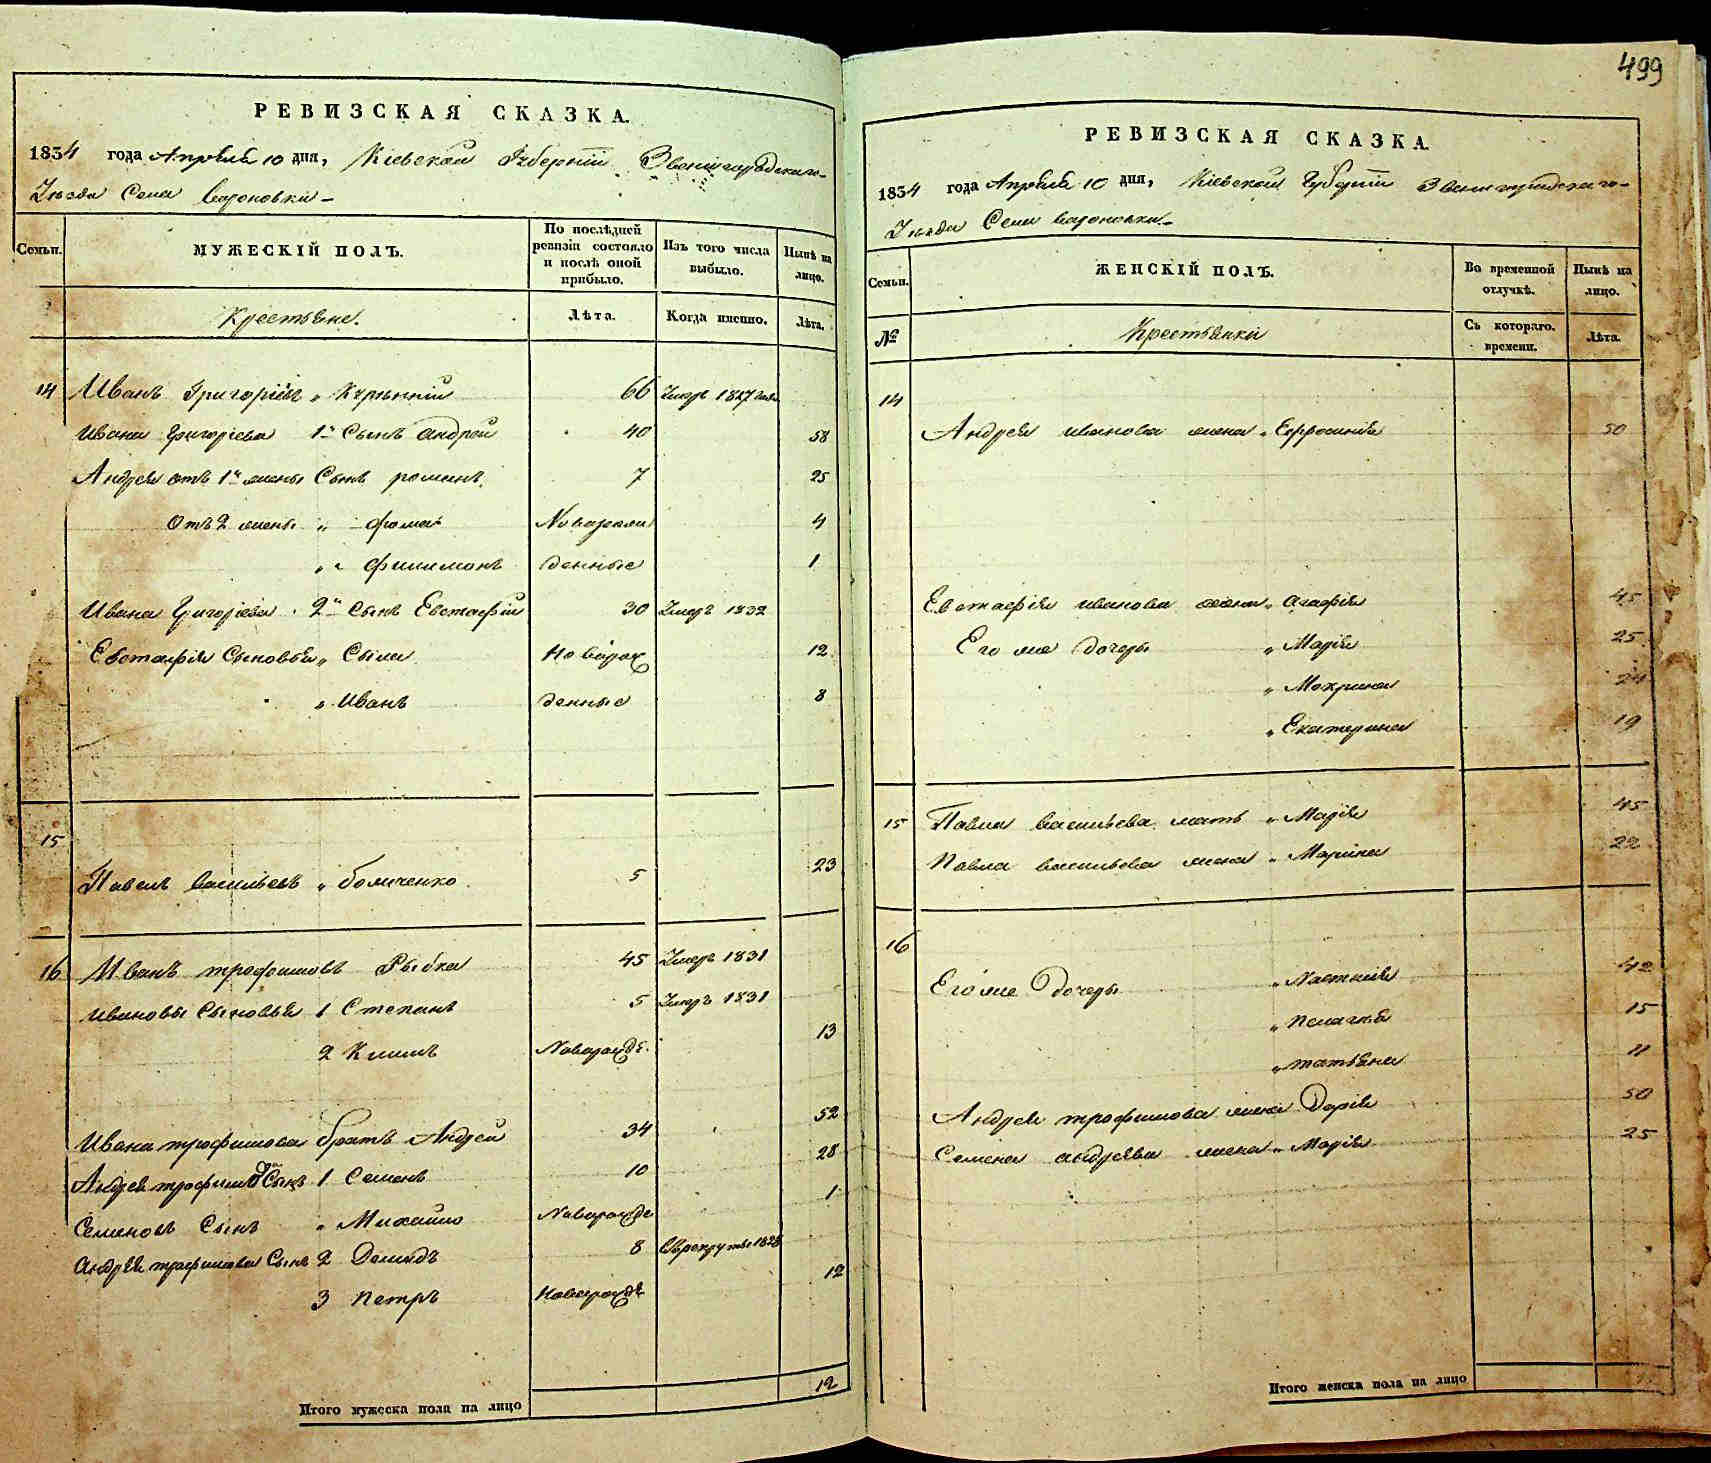 499
РЕВИЗСКАЯ СКАЗКА.
1834 года Апреля 10 дня, Кіевской Губерніи Звенигородскаго
Уезда Села Вороновки
Семьи.
МУЖЕСКІЙ ПОЛЪ.
По послѣдней ревизіи состояло и послѣ оной прибыло.
Изъ того числа выбыло.
Нынѣ на лицо.
Крестьяне.
Лѣта.
Когда именно.
Лѣта.
14 Иванъ Григорьевъ 66 Умеръ 1827
Ивана Григорьева 1й Сынъ Андрей 40 58
Андрея отъ 1й жены Сынъ романъ 7 25
Отъ 2 жены " фома Новорож 4
" " филимонъ денные 1
Ивана Григорьева 2й Сынъ Евстафій 30 Умеръ 1832
Евстафія Сыновья " Сыла Новорож 12
" Иванъ денные 8
15
Павелъ Васильевъ " 5 23
16 Иванъ трофимовъ Рыбка 45 Умеръ 1831
Ивановы Сыновья 1 Степанъ 5 Умеръ 1831
2 Климъ Новорожде. 13
Ивана трофимова братъ Андрей 34 52
Андрея трофимова Сынъ 1 Семенъ 10 28
Семеновъ Сынъ " Михайло Новорожде 1
Андрея трофимова Сынъ 2 Демидъ 8 Врекруты 1828
3 Петръ Новорожде 12
Итого мужеска пола на лицо 12
РЕВИЗСКАЯ СКАЗКА.
1834 года Апреля 10 дня, Кіевской Губерніи Звенигородскаго
Уезда Села Вороновки
Семьи.
ЖЕНСКІЙ ПОЛЪ.
Во временной отлучкѣ.
Нынѣ на лицо.
№
Крестьянки
Съ котораго. времени.
Лѣта.
14
Андрея иванова жена " Ефросинія 50
Евстафія иванова жена " Агафія 45
Его же дочери " Марія 25
" Мокрина 24
" Екатерина 19
15 Павла Васильева мать " Марія 45
Павла васильева жена " Марина 22
16
Его же дочери " Настасія 42
" Пелагея 15
" татьяна 11
Андрея трофимова жена Дарія 50
Семена андреева жена " Марія 25
Итого женска пола на лицо